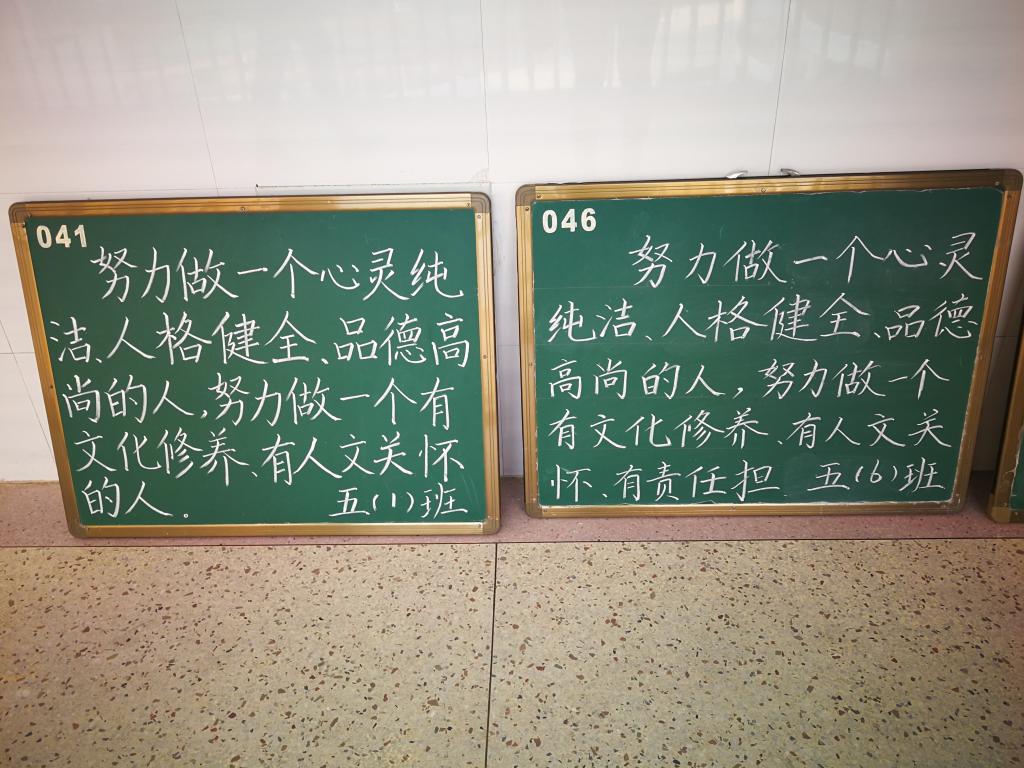 041
努力做一个心灵纯
洁、人格健全、品德高
尚的人,努力做一个有
文化修养、有人文关怀
的人。 五(1)班
046
努力做一个心灵
纯洁、人格健全、品德
高尚的人,努力做一个
有文化修养、有人文关
怀、有责任担 五(6)班